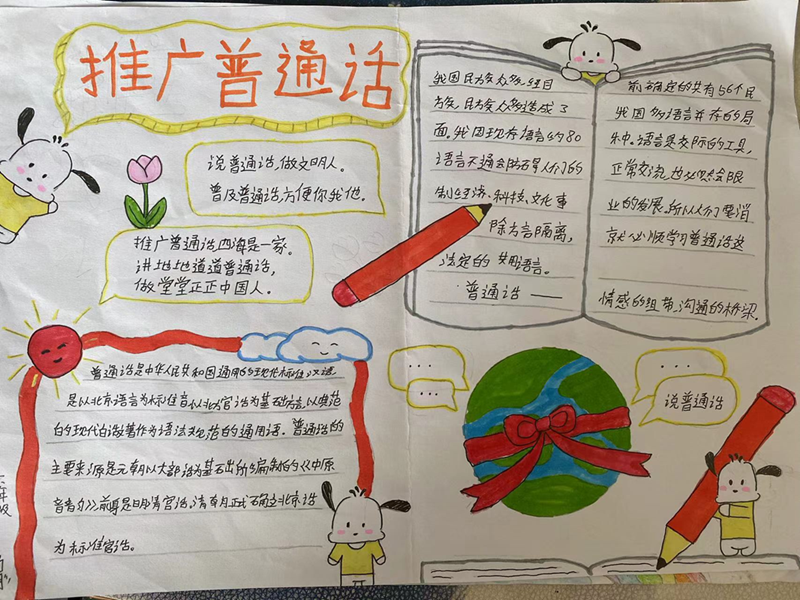 推广普通话
说普通话,做文明人。
普及普通话,方便你我他。
推广普通话,四海是一家。
讲地地道道普通话,
做堂堂正正中国人。
普通话是中华人民共和国通用的现代标准汉语
是以北京语言为标准音以北方官话为基础方言,以典范
的现代白话著作为语法规范的通用话。普通话的
主要来源是元朝以大部话为基础所编制的《中原
音韵》前身是明清官话,清有月正式确立北京话
为标准官话。
我国民族众多,经目
方多,民族众多造成了
面,我国现存语言约80
语言不通会阻碍人们的
制约经济、科技、文化事
除方言隔离,
法定的共用语言。
普通话 ——
前确定的共有56个民
我国多语言并存的局
种,语言是交际的工具,
正常交流,也必然会限
业的发展,所以人们要消
就必须学习普通话这
情感的纽带,沟通的桥梁.
......
...
说普通话
六年级